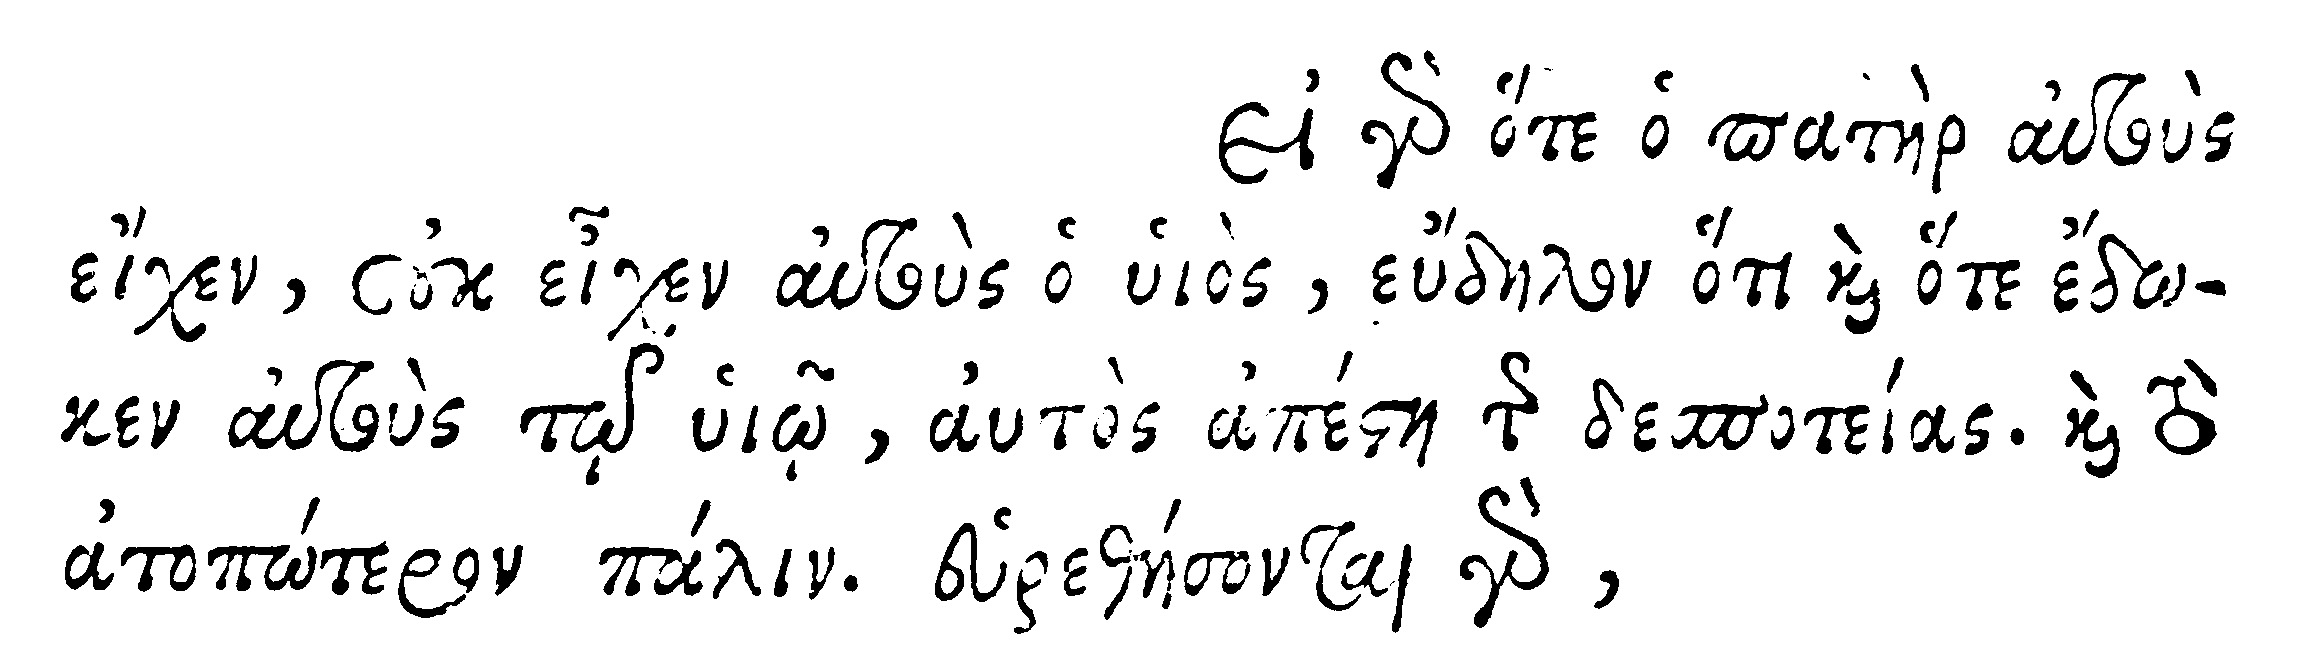 Εἰ γὰρ ὅτε ὁ πατὴρ αὐτοὺς
εἴχεν, οὐκ εἶχεν αὐτοὺς ὁ υἱὸς, εὔδηλον ὅτι καὶ ὅτε ἔδω-
κεν αὐτοὺς τῷ υἱῷ, αὐτὸς ἀπέστη τῆς δεσποτείας. καὶ τὸ
ἀτοπώτερον πάλιν. εὑρεθήσονται γὰρ,